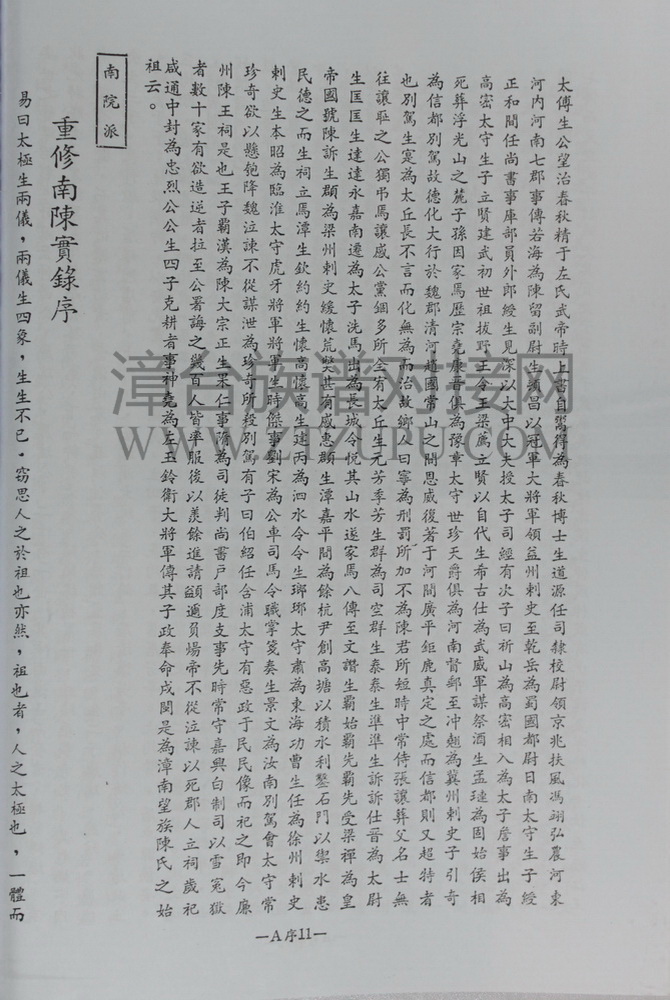 太傅生公望治春秋精于左氏武帝時上書自鬻得為春秋博士生道源任司隸校尉領京兆扶風馮翊弘農河東
河內河南七郡事傳若海為陳留副尉生頌昌以冠軍大將軍領益州刺史至乾岳為蜀國都尉日南太守生子綬
正和間任尚書事庫部員外郎綬生見深以大中大夫授太子司經有次子曰祈山為高密相入為太子詹事出為
高密太守生子立賢建武初世祖拔野王令王梁薦立賢以自代生希古仕為武威軍謀祭酒生孟璉為固始侯相
死葬浮光山之麓子孫因家焉歷宗堯康晉俱為豫章太守世珍天爵俱為河南督郵至冲翹為冀州刺史子引奇
為信都別駕故德化大行於魏郡清河趙國常山之間恩威復著于河間廣平鉅鹿真定之處而信都則又超特者
也別駕生寔為太丘長不言而化無為而治故鄉人曰寧為刑罰所加不為陳君所短時中常侍張讓葬父名士無
往讓恥之公獨弔焉讓感公黨錮多所全宥太丘生元芳季芳生群為司空群生泰泰生準準生訴訴仕晉為太尉
生匡匡生達達永嘉南遷為太子洗馬出為長城令悅其山水遂家焉八傳至文讚生霸始霸先霸先受梁禪為皇
帝國號陳訴生顒為梁州刺史緩懷荒獘甚有威惠顒生潭嘉平間為餘杭尹創高塘以積水利鑿石門以禦水患
民德之而生祠立焉潭生欽約約生懷高懷高生逮丙為泗水令令生瑯琊太守肅為東海功曹生任為徐州刺史
刺史生本昭為臨淮太守虎牙將軍將軍生時傑事劉宋為公車司馬令職掌箋奏生景文為汝南別駕會太守常
珍奇欲以懸瓠降魏泣諫不從謀泄為珍奇所殺別駕有子曰伯紹任合浦太守有惡政于民民像而祀之即今廉
州陳王祠是也王子覇漢為陳大宗正生果仁事隋為司徒判尚書戶部度支事先時常守嘉興白制司以雪冤獄
者數十家有欲造逆者拉至公署誨之幾百人皆率服後以羨餘進請顓逋負煬帝不從泣諫以死郡人立祠歲祀
咸通中封為忠烈公公生四子克耕者事神堯為左玉鈐衛大將軍傳其子政奉命戍閩是為漳南望族陳氏之始
祖云。
南院派
重修南陳實錄序
易曰太極生兩儀，兩儀生四象，生生不已。竊思人之於祖也亦然，祖也者，人之太極也，一體而
—A序11—
漳台族谱对接网
WWW.ZTZUPU.COM